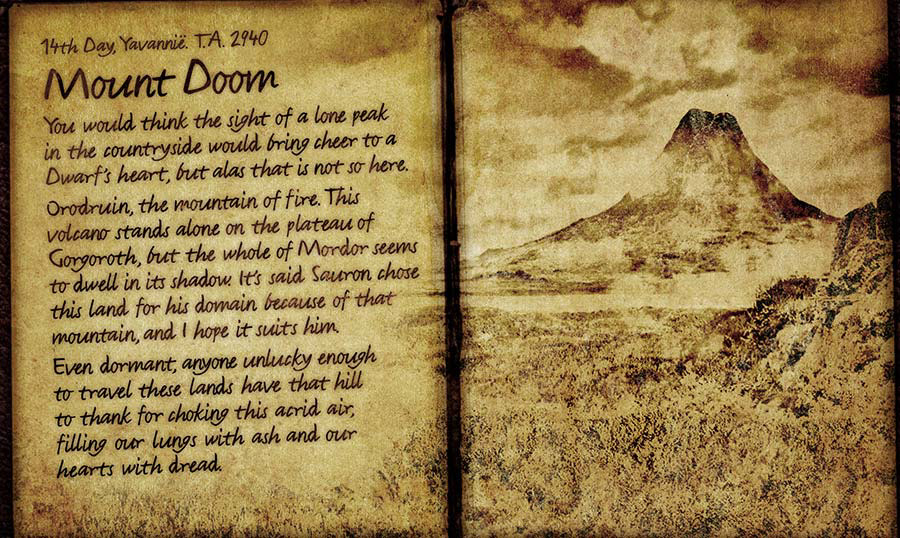 14th Day, Yavannië. T.A. 2940
Mount Doom
You would think the sight of a lone peak
in the countryside would bring cheer to a
Dwarf's heart, but alas that is not so here.
Orodruin, the mountain of fire. This
volcano stands alone on the plateau of
Gorgoroth, but the whole of Mordor seems
to dwell in its shadow. It's said Sauron chose
this land for his domain because of that
mountain, and I hope it suits him.
Even dormant, anyone unlucky enough
to travel these lands have that hill
to thank for choking this acrid air,
filling our lungs with ash and our
hearts with dread.